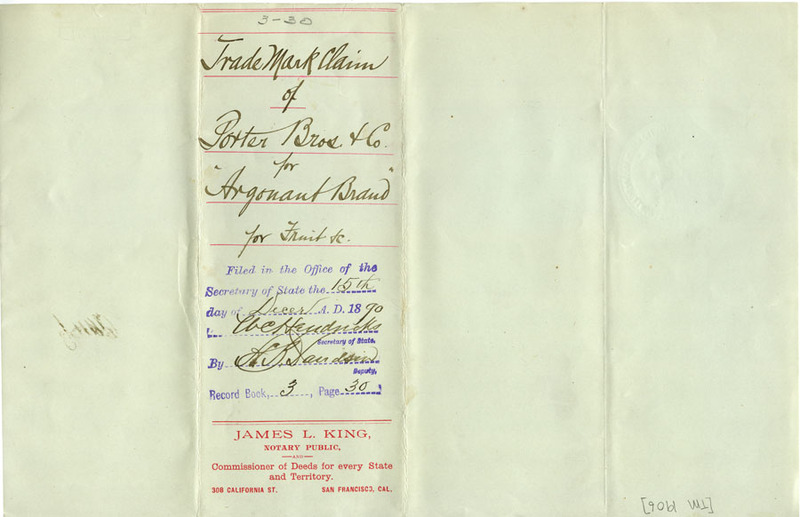 3-30
Trade Mark Claim
of
Porter Bros. & Co.
for
"Argonaut Brand"
for Fruit &c.
Filed in the Office of the
Secretary of State the 15th
day of Decer A. D. 1890
W C Hendricks
Secretary of State.
By
Deputy.
Record Book, 3, Page 30
JAMES L. KING,
NOTARY PUBLIC,
AND
Commissioner of Deeds for every State
and Territory.
308 CALIFORNIA ST. SAN FRANCISCO, CAL.
[TM 1906]